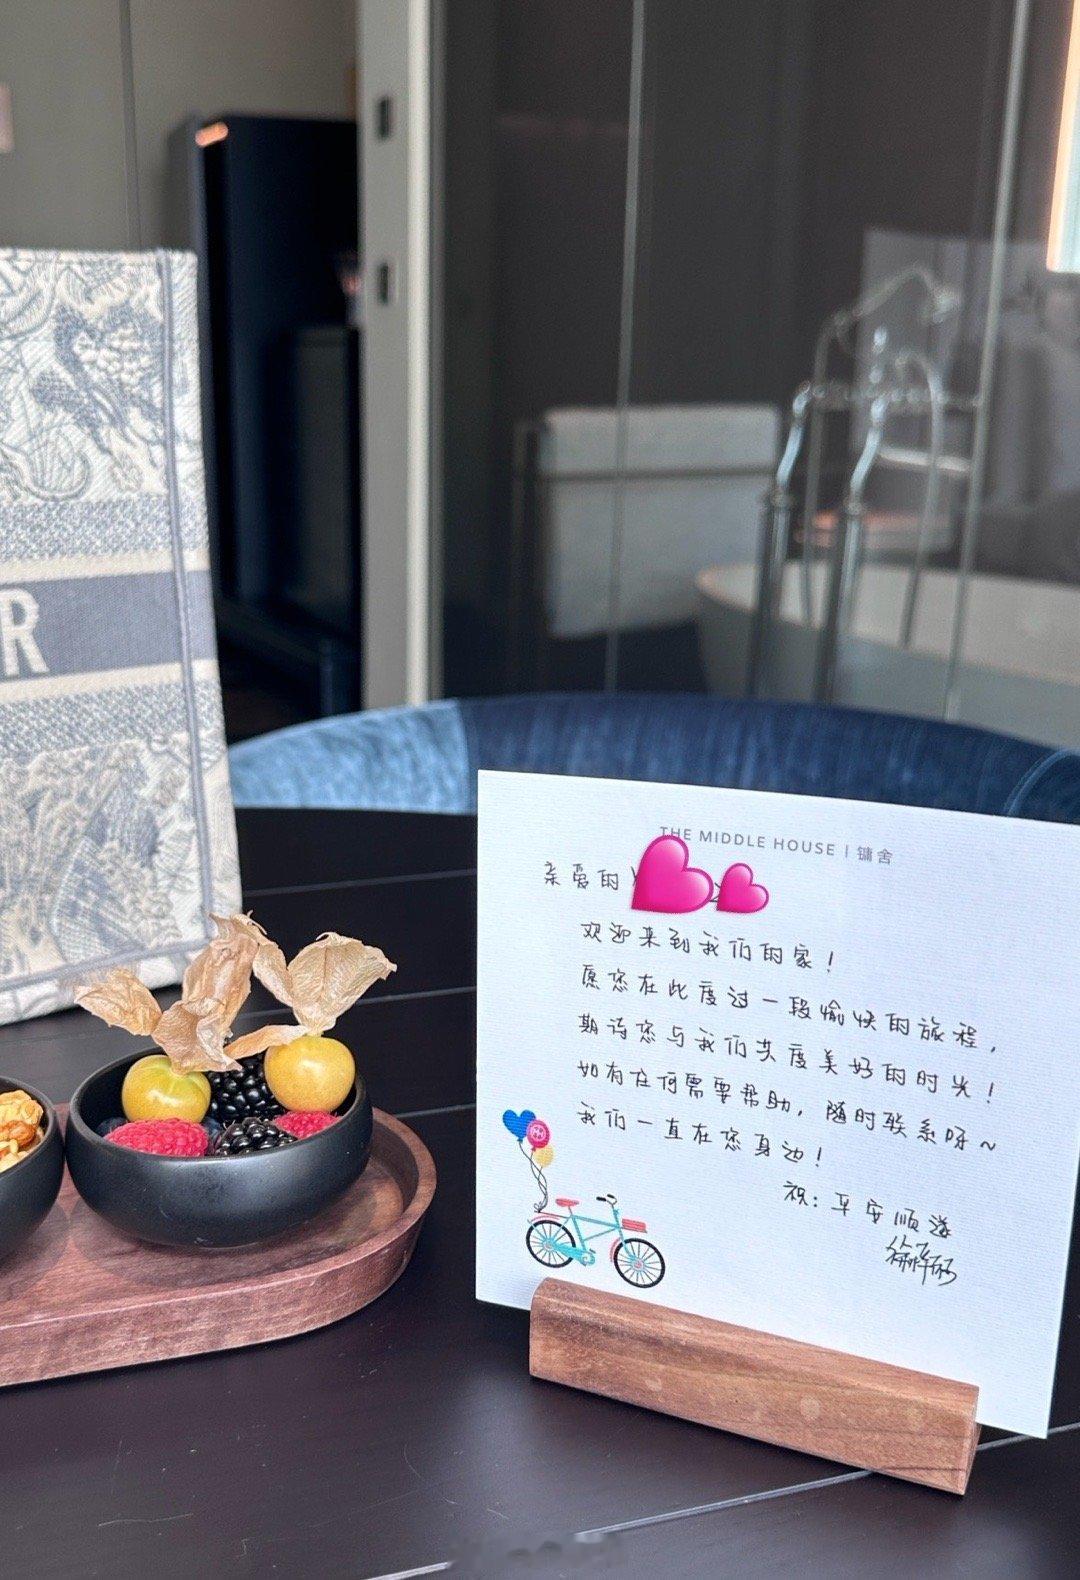 R
THE MIDDLE HOUSE | 镛舍
亲爱的
欢迎来到我们的家！
愿您在此度过一段愉快的旅程，
期待您与我们共度美好的时光！
如有任何需要帮助，随时联系呀～
我们一直在您身边！
祝：平安顺遂